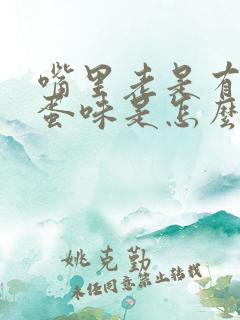 嘴里老是有
蛋味是怎麽
姚克勤
未经同意禁止转载